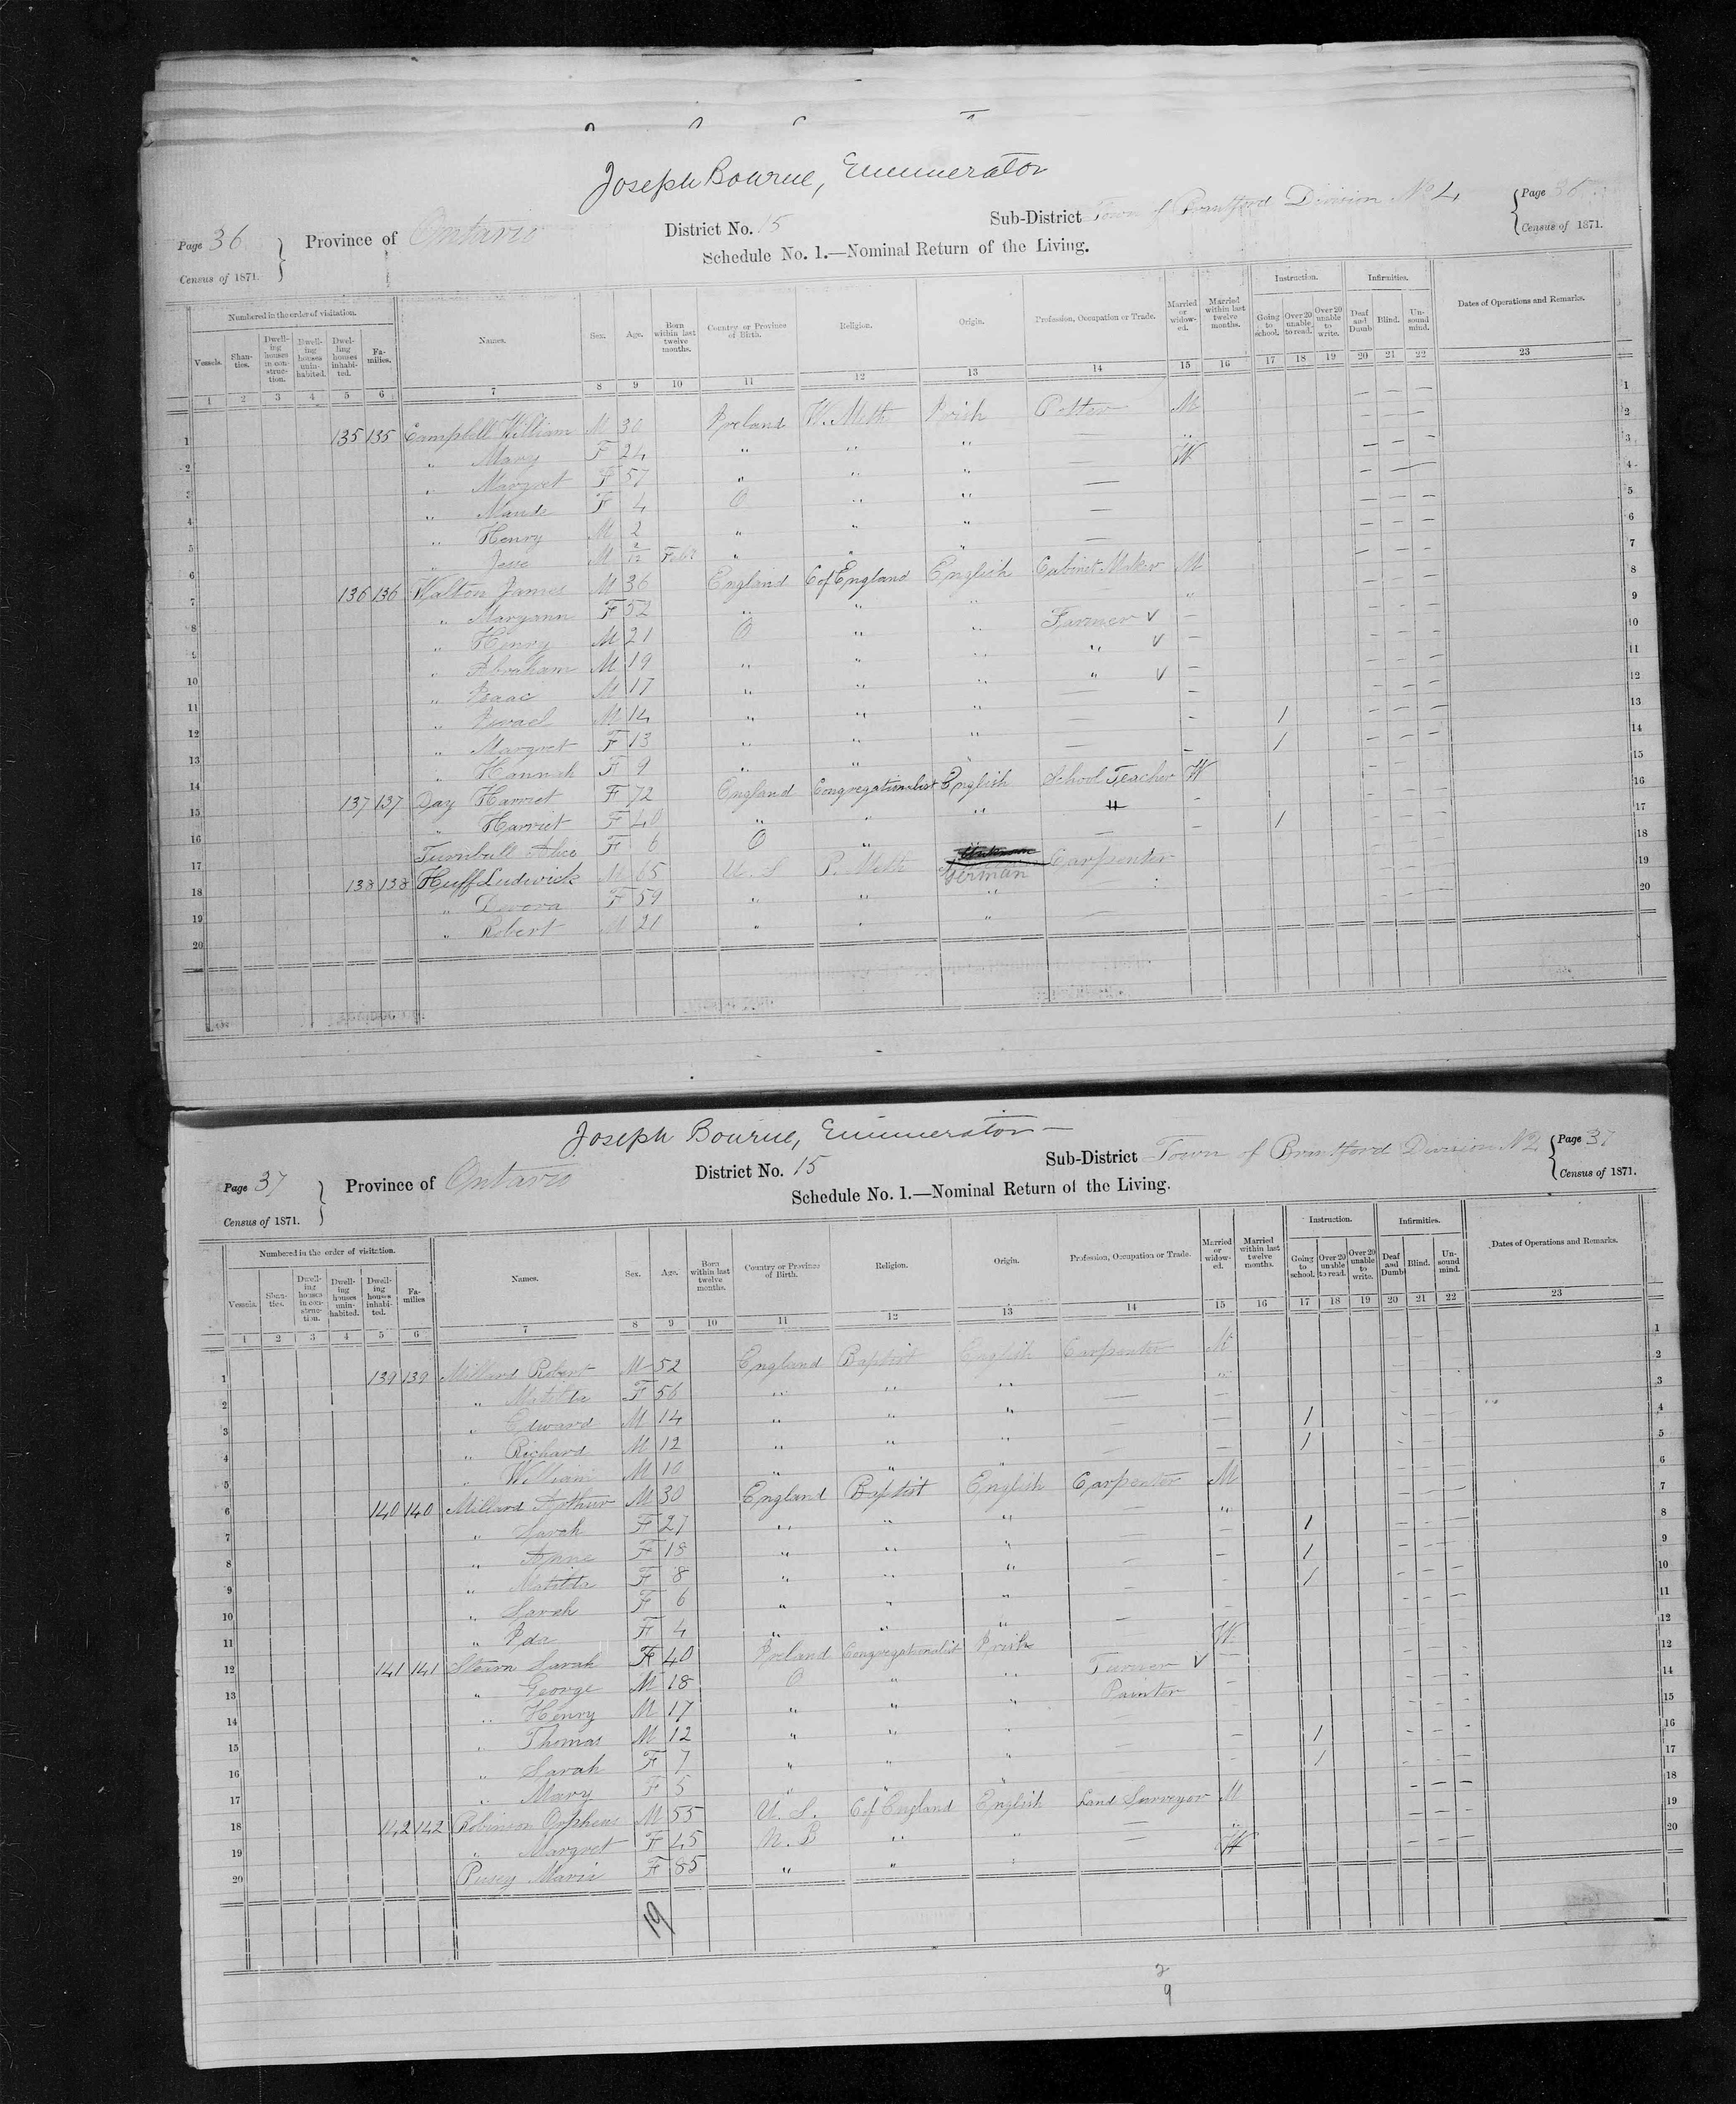 Joseph Bourne, Enumerator
Page 36 Census of 1871. Province of Ontario District No. 15 Sub-District Town of Brantford Division No 2 Page 36 Census of 1871.
Schedule No. 1.—Nominal Return of the Living.
Numbered in the order of visitation. Names. Sex. Age. Born within last twelve months. Country or Province of Birth. Religion. Origin. Profession, Occupation or Trade. Married or widowed. Married within last twelve months. Instruction. Infirmities. Dates of Operations and Remarks.
Vessels. Shanties. Dwelling houses in construction. Dwelling houses uninhabited. Dwelling houses inhabited. Families. Going to school. Over 20 unable to read. Over 20 unable to write. Deaf and Dumb. Blind. Unsound mind.
1 2 3 4 5 6 7 8 9 10 11 12 13 14 15 16 17 18 19 20 21 22 23
1 135 135 Campbell William M 30 Ireland W. Meth Irish Potter M — — — 1
2 " Mary F 24 " " " — " — — — 2
3 " Margret F 57 " " " — W — — — 3
4 " Maude F 4 O " " — — — 4
5 " Henry M 2 " " " — — — — 5
6 " M 2/12 Feb " " " — — — 6
7 136 136 Walton James M 36 England C of England English Cabinet Maker M — — — 7
8 " Maryann F 52 " " " " — — — 8
9 " Henry M 21 O " " Farmer V — — — — 9
10 " Abraham M 19 " " " " V — — — — 10
11 " Isaac M 17 " " " " V — — — — 11
12 " Israel M 14 " " " — — — — — 12
13 " Margret F 13 " " " — — 1 — — — 13
14 " Hannah F 9 " " " — — 1 — — — 14
15 137 137 Day Harriet F 72 England Congregationalist English School Teacher W — — — 15
16 " Harriet F 40 " " " " — — — — 16
17 Turnbull Alice F 6 O " — — 1 — — — 17
18 138 138 Huff Ludwick M 65 U. S P. Meth German Carpenter — — — 18
19 " F 59 " " " — — — 19
20 " Robert M 21 " " " — — — — 20
Joseph Bourne, Enumerator—
Page 37 Census of 1871. Province of Ontario District No. 15 Sub-District Town of Brantford Division No 2 Page 37 Census of 1871.
Schedule No. 1.—Nominal Return of the Living.
Numbered in the order of visitation. Names. Sex. Age. Born within last twelve months. Country or Province of Birth. Religion. Origin. Profession, Occupation or Trade. Married or widowed. Married within last twelve months. Instruction. Infirmities. Dates of Operations and Remarks.
Vessels. Shanties. Dwelling houses in construction. Dwelling houses uninhabited. Dwelling houses inhabited. Families Going to school. Over 20 unable to read. Over 20 unable to write. Deaf and Dumb Blind. Unsound mind.
1 2 3 4 5 6 7 8 9 10 11 12 13 14 15 16 17 18 19 20 21 22 23
1 139 139 Millard Robert M 52 England Baptist English Carpenter M 1
2 " Matilda F 56 " " " — " 2
3 " Edward M 14 " " " — — 1 3
4 " Richard M 12 " " " — — 1 4
5 " William M 10 " " " 5
6 140 140 Millard Arthur M 30 England Baptist English Carpenter M 6
7 " Sarah F 27 " " " — " 7
8 " Anne F 18 " " " — — 1 8
9 " Matilda F 8 " " " — — 1 9
10 " Sarah F 6 " " " — — 1 10
11 " Ida F 4 " " " — — 11
12 141 141 Sarah F 40 Ireland Congregationalist Irish — W 12
13 " George M 18 O " " Turner V — 12
14 " Henry M 17 " " " Painter — 14
15 " Thomas M 12 " " " — 15
16 " Sarah F 7 " " " — — 1 16
17 " Mary F 5 " " " — — 1 17
18 142 142 Robinson Orpheus M 55 U. S. C of England English Land Surveyor M 18
19 " Margret F 45 N. B " " — " 19
20 Pusey Maria F 85 " " " — W 20
19
2
9